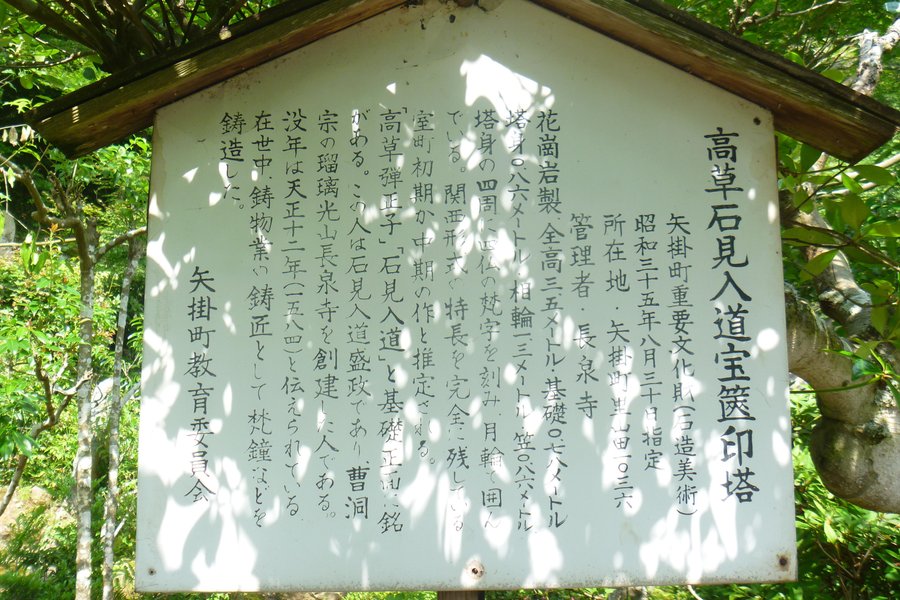 高草石見入道宝篋印塔
矢掛町重要文化財(石造美術)
昭和三十五年八月三十日指定
所在地・矢掛町里山田一〇三六
管理者・長泉寺
花崗岩製 全高三.五メートル・基礎〇.七八メートル
塔身〇.八六メートル・相輪一.三メートル・笠〇.八六メートル
塔身の四周に四仏の梵字を刻み、月輪で囲ん
でいる。関西形式の特長を完全に残している
室町初期か中期の作と推定される。
「高草弾正子」「石見入道」と基礎正面に銘
がある。この人は石見入道盛政であり 曹洞
宗の瑠璃光山長泉寺を創建した人である。
没年は天正十二年(一五八四)と伝えられている
在世中、鋳物業の鋳匠として 梵鐘などを
鋳造した。
矢掛町教育委員会